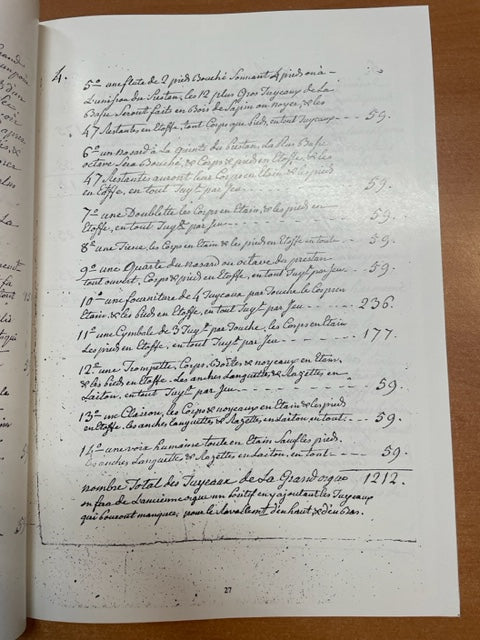 4.
5º une flute de 2 pied Bouché Sonnant 4 pied ou à
L'unison du Prestan, les 12 plus Gros Tuyeaux de La
Basse Seront faits en Bois de Sapin ou noyer, & les
47 Restantes en Etoffe, tout Corps que pied, en tout Tuyeaux - - - 59.
6º un nasard à La quinte du Prestan, La plus Basse
octave Sera Bouché, & Corps & pied en Etoffe, & les
47 Restantes auront leur Corps en Etain, & les pied
en Etoffe, en tout Tuyx par Jeu - - - 59.
7º une Doublette les Corps en Etain, & les pied en
Etoffe, en tout Tuyx par Jeu - - - 59.
8º une Tierce, les Corps en Etain & les pied en Etoffe en tout - - - 59.
9º une Quarte du nasard ou octave du prestan
tout ouvert, Corps & pied en Etoffe, en tout Tuyx par Jeu - - - 59.
10º une fourniture de 4 Tuyeaux par Touche le Corps en
Etain, & les pied en Etoffe, en tout Tuyx par Jeu - - - 236.
11º une Cymbale de 3 Tuyx par Touche, les Corps en Etain
Les pied en Etoffe, en tout Tuyx par Jeu - - - 177.
12º une Trompette, Corps, Boîtes & noyeaux en Etain,
& les pied en Etoffe. Les anches Languettes, & Razettes en
Laiton, en tout Tuyx par Jeu - - - 59.
13º une Clairon, les Corps & noyeaux en Etain & les pied
en Etoffe, les anches Languettes & Razettes, en Laiton en tout - - - 59.
14º une voix humaine toute en Etain Sauf les pied.
les anches Languette & Razettes, en Laiton, en tout - - - 59.
nombre Total des Tuyeaux de La Grand orgue 1212.
on fera de L'ancienne orgue un Positif en y ajoutant les Tuyeaux
qui pouront manquer, pour le Ravallemt d'en haut, & d'en Bas.
27